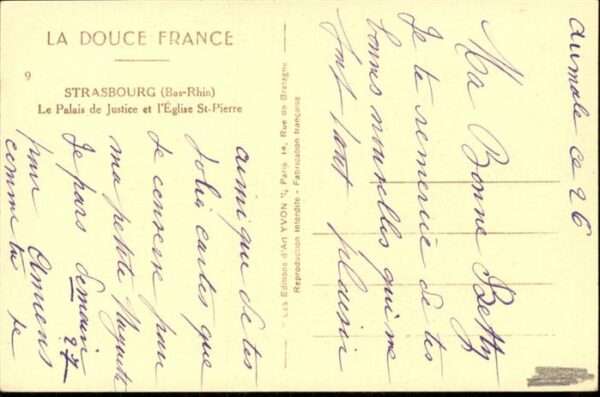 LA DOUCE FRANCE
9
STRASBOURG (Bas-Rhin)
Le Palais de Justice et l'Église St-Pierre
Les Éditions d'Art YVON, Paris, Rue de Bretagne
Reproduction interdite - Fabrication française
aumale ce 26
Ma Bonne Betty
Je te remercie de tes
bonnes nouvelles qui me
font tant plaisir
ainsi que de tes
jolies cartes que
Je conserve pour
ma petite Huguette
Je pars demain 27
pour Amiens
comme tu le